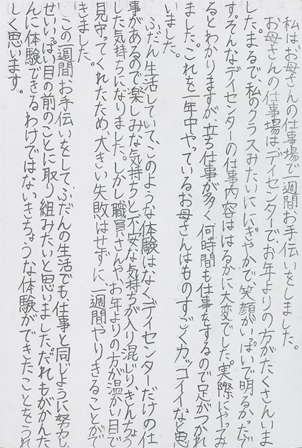 私はお母さんの仕事場で一週間お手伝いをしました。
お母さんの仕事場はデイセンターでお年よりの方がたくさんいま
した。まるで私のクラスみたいににぎやかで笑顔がいっぱいで明るかったで
す。そんなデイセンターの仕事内容ははるかに大変でした。実際にやってみ
るとわかりますが、立ち仕事が多く何時間も仕事をするので足がつかれ
ました。これを一年中やっているお母さんはものすごくカッコイイなと思
いました。
ふだん生活していて、このような体験はなくデイセンターだけの仕
事があるので楽しみな気持ちと不安な気持ちが入り混じりきんちょう
した気持ちになりました。しかし職員さんや、お年よりの方が温かい目で
見守ってくれたため大きい失敗はせずに一週間やりきることがで
きました。
この一週間お手伝いをして、ふだんの生活でも仕事と同じように努力し
せいいっぱい目の前のことに取り組みたいと思いました。だれもがかんた
んに体験できるわけではないきちょうな体験ができたことをうれ
しく思います。